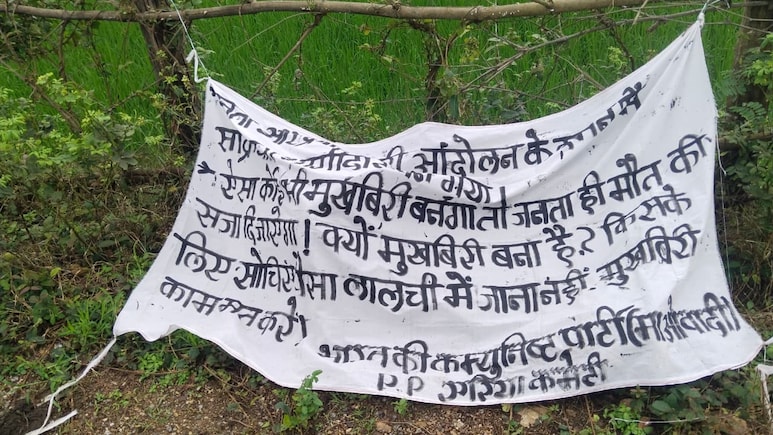 आंदोलन के
गया!
ऐसा कोई भी मुखबिरी बनेगा तो जनता ही मौत की
सजा दि जाऐगा! क्यों मुखबिरी बना है.? किसके
लिए सोचिए पैसा लालची में जाना नहीं. मुखबिरी
का काम मत करो।
भारत की कम्युनिष्ट पार्टी (माओवादी)
R.P एरिया कमेटी